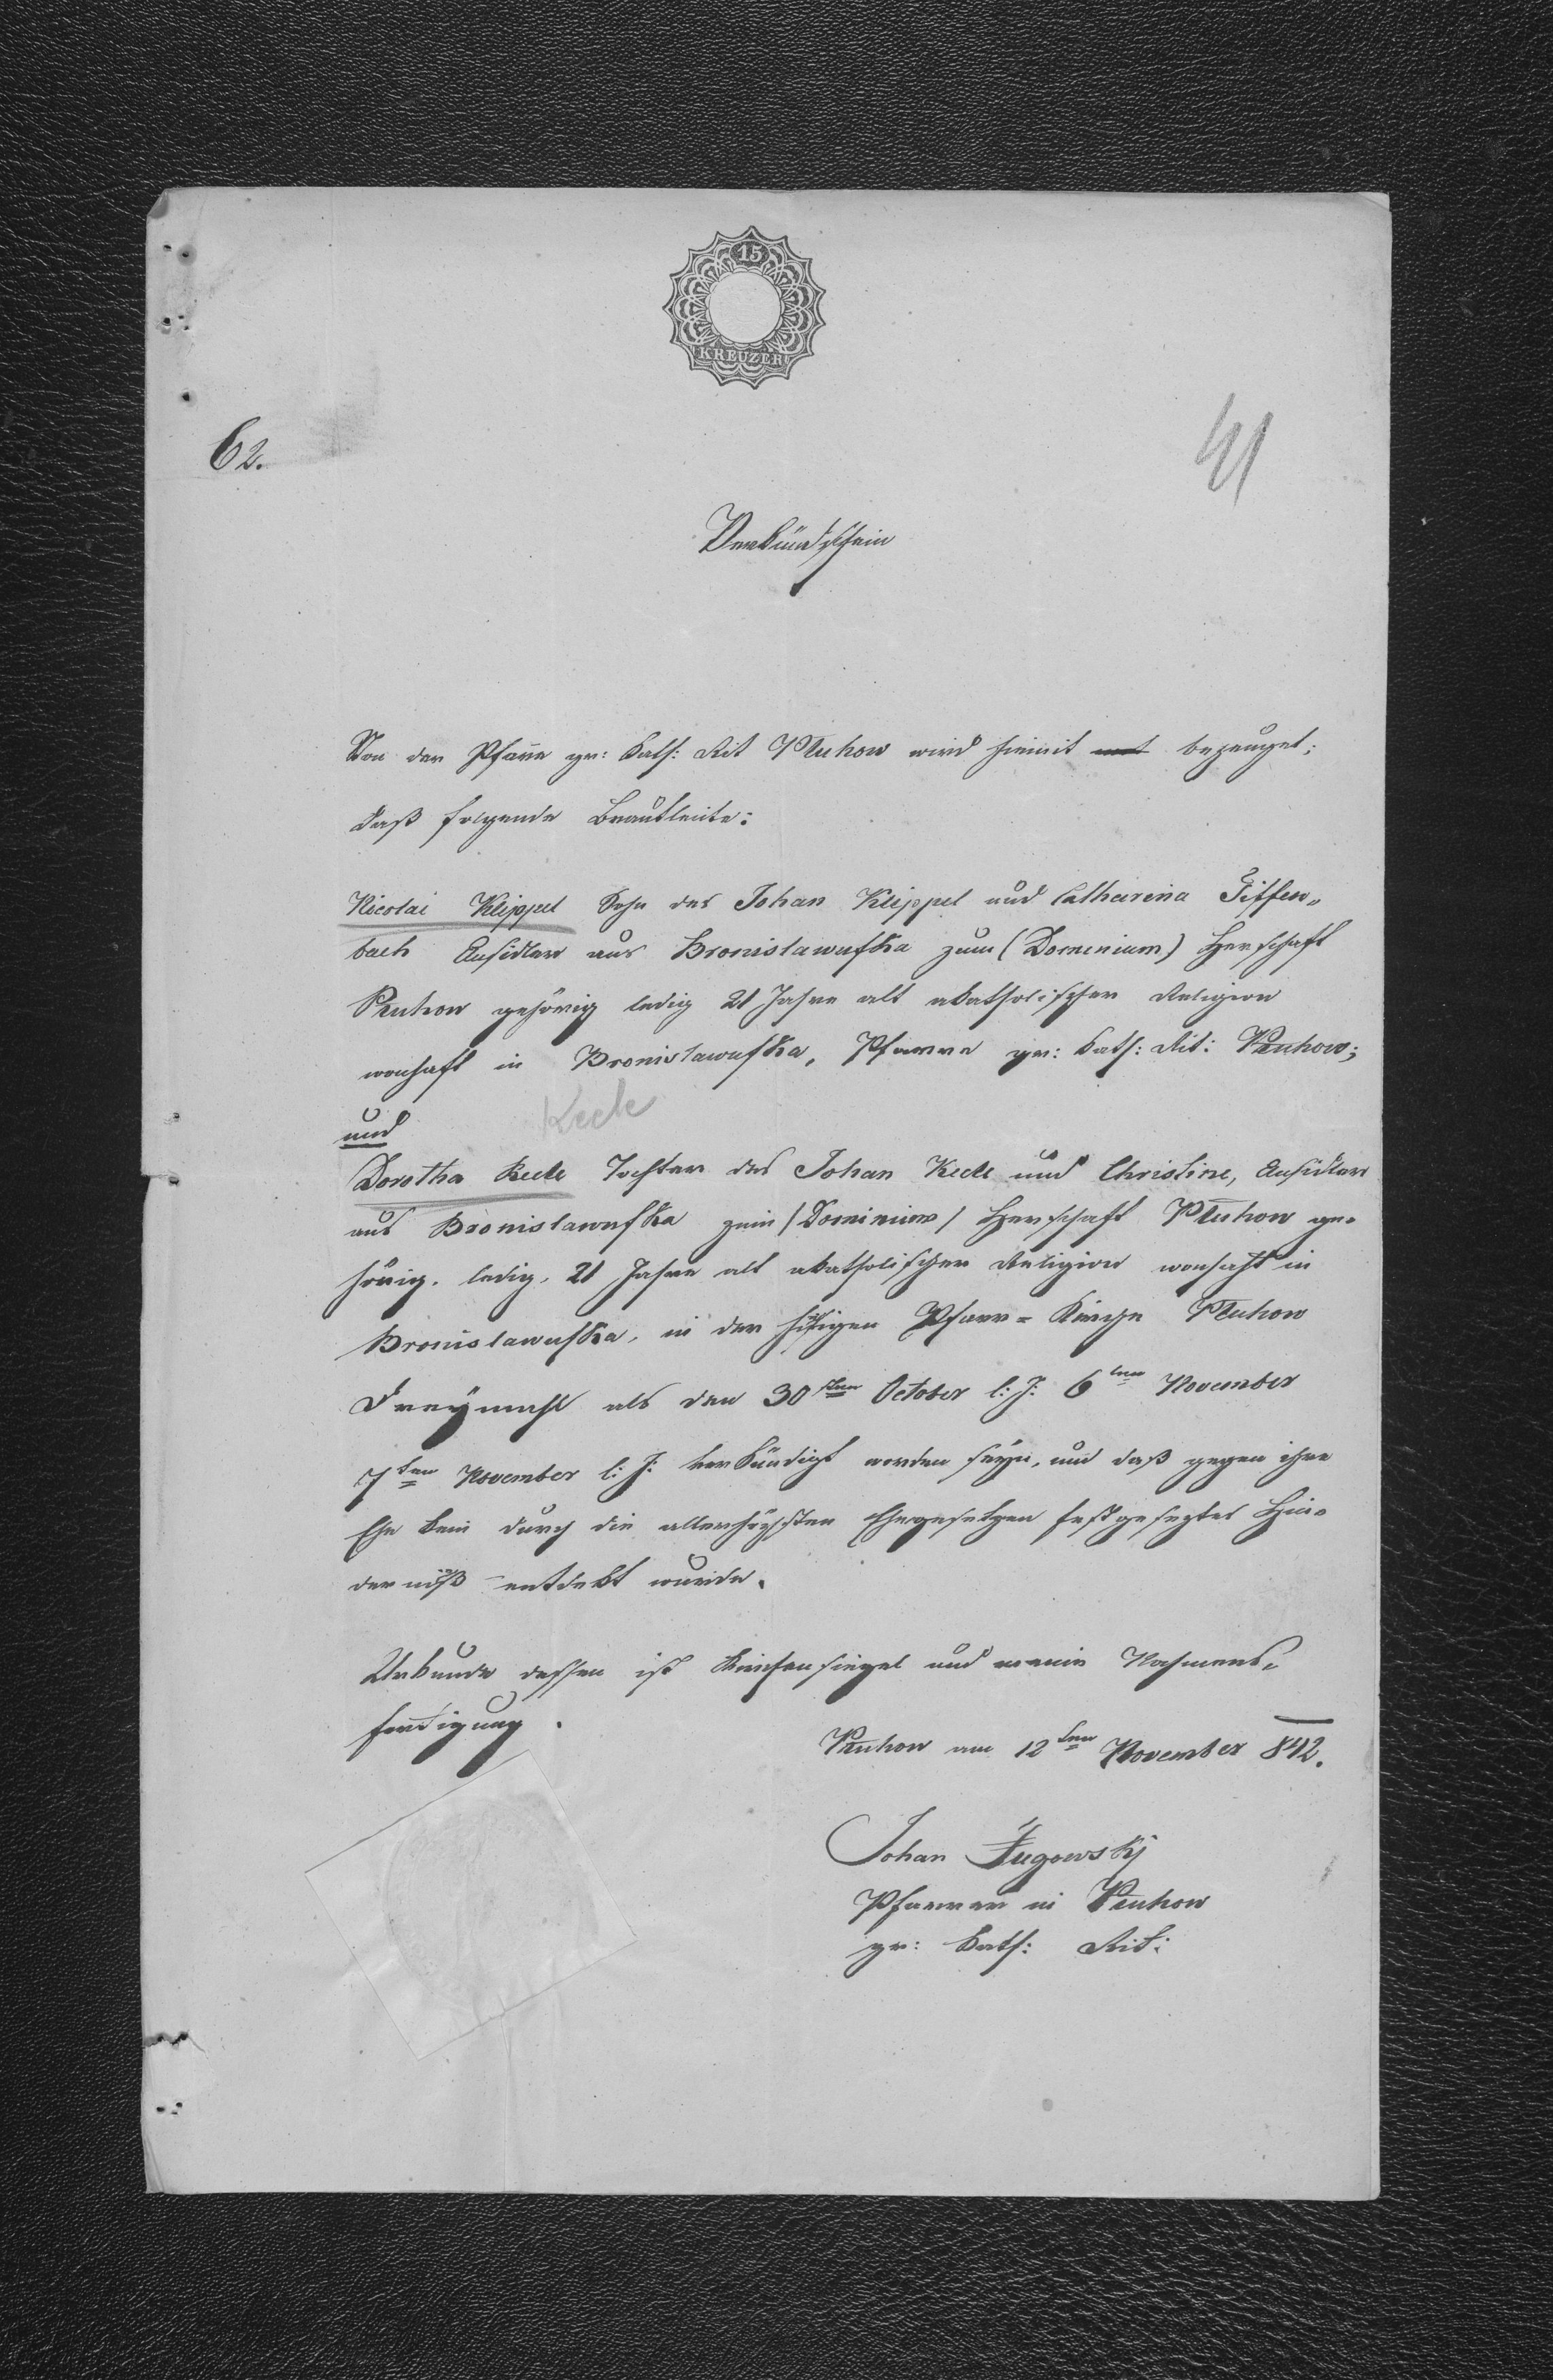 15
KREUZER
62.
41
Verkündschein
Von der Pfarre gr: kath: Rit Płuhow wird hiemit bezeuget;
daß folgende Brautleute:
Nicolai Klippel Sohn des Johan Klippel und Catharina Tiffen„
bach Ansidler aus Bronislawufka zum (Dominium) Herschaft
Płuhow gehörig ledig 21 Jahre alt akatholischer Religion
wonhaft in Bronislawufka, Pfarre gr: kath: Rit: Płuhow;
und
Keck
Dorotha Keck Tochter des Johan Keck und Christine, Ansidler
aus Bronislawufka zum /Dominium/ Herschaft Płuhow ge„
hörig. ledig, 21 Jahre alt akatholischer Religion wonhaft in
Bronislawufka, in der hisigen Pfarr = Kirche Płuhow
Dreymahl als den 30sten October l: J: 6ten November
7ten November l: J: verkündigt worden seyn, und daß gegen ihre
Ehe kein durch die allerhöchsten Ehegesetzen festgesetztes Hin„
derniß entdekt wurde.
Urkunde dessen ist Kirchensiegel und meine Nahmens„
fertigung.
Płuhow am 12ten November 842.
Johan Ługowskj
Pfarrer in Płuhow
gr: kath: Rit: